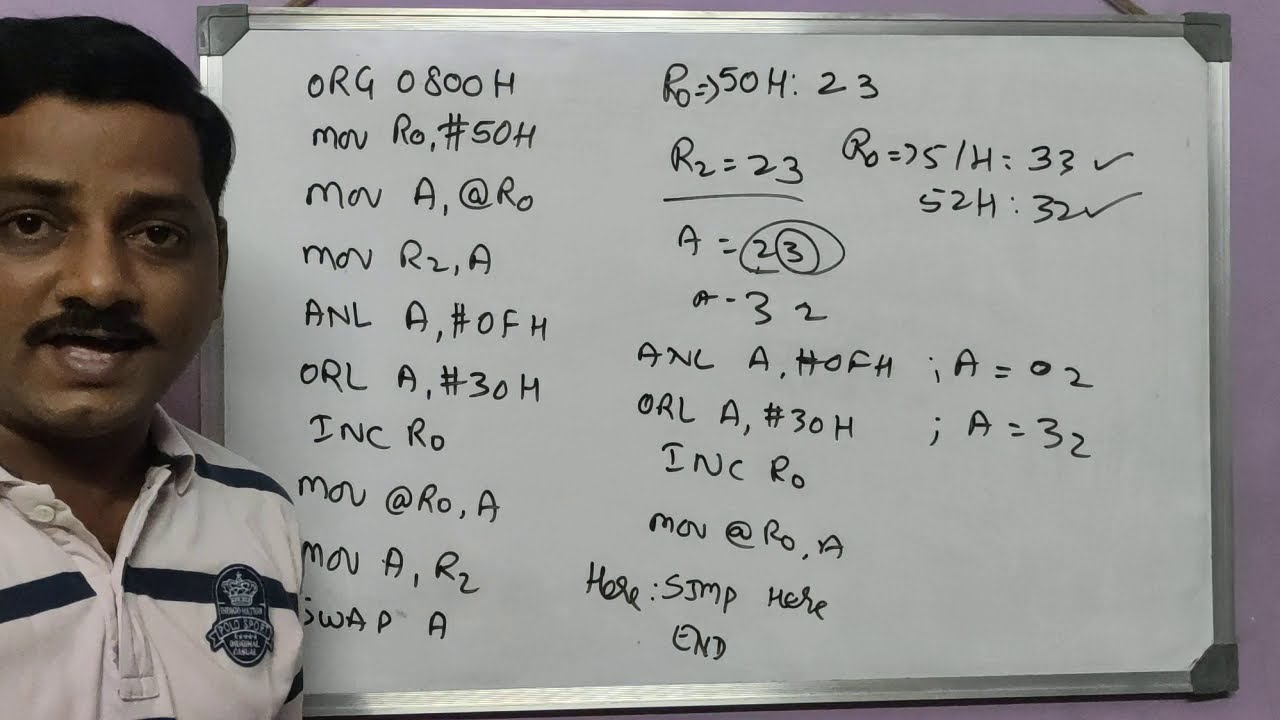 ORG 0800H
mov R0,#50H
mov A,@R0
mov R2,A
ANL A,#0FH
ORL A,#30H
INC R0
mov @R0,A
mov A,R2
SWAP A
R0=>50H: 23
R2=23
R0=>51H: 33 ✓
52H: 32 ✓
A=23
A-32
ANL A,#0FH ;A=02
ORL A,#30H ;A=32
INC R0
mov @R0,A
Here:SJMP Here
END
POLO SPORT
ORIGINAL
CASUAL